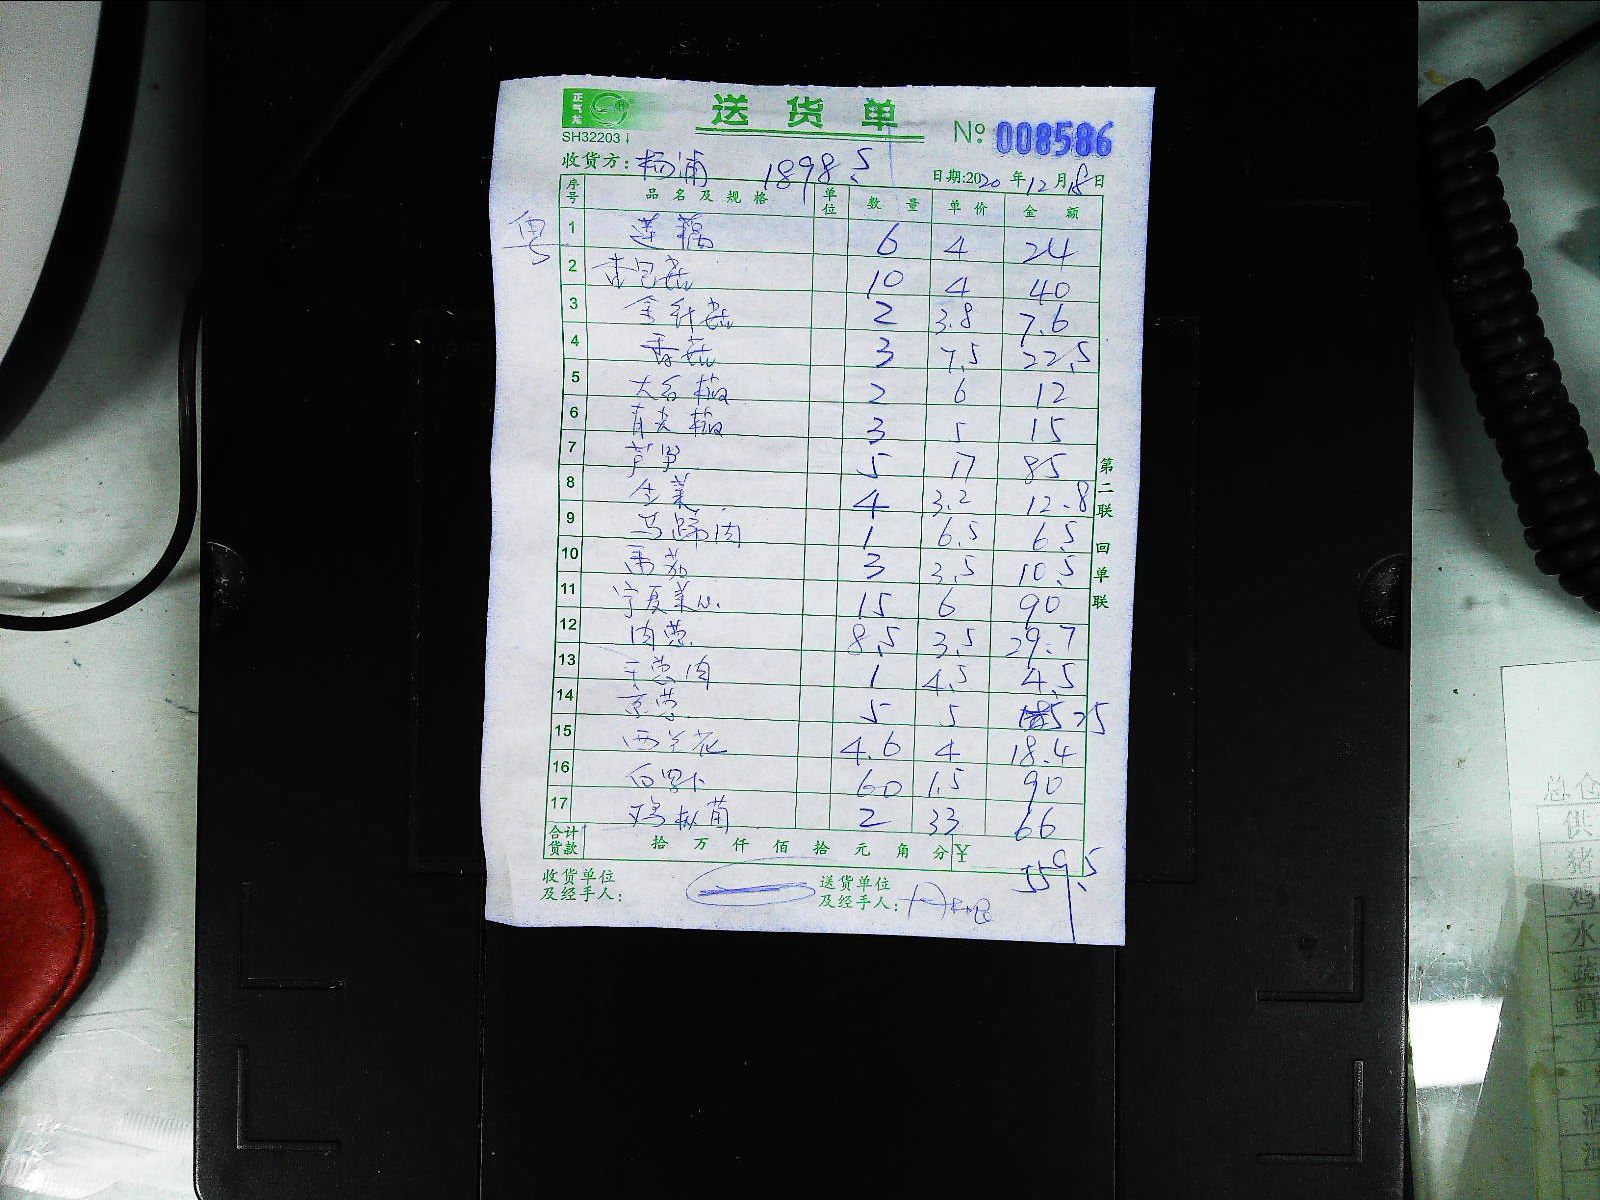 正气龙
送货单
SH32203
№ 008586
收货方: 杨浦 1898.5
日期:2020年12月18日
序号 品名及规格 单位 数量 单价 金额
粤
1 莲藕 6 4 24
2 杏包菇 10 4 40
3 金针菇 2 3.8 7.6
4 香菇 3 7.5 22.5
5 大红椒 2 6 12
6 青尖椒 3 5 15
7 芦笋 5 17 85
8 生菜 4 3.2 12.8
9 马蹄肉 1 6.5 6.5
10 番茄 3 3.5 10.5
11 宁夏菜心 15 6 90
12 肉葱 8.5 3.5 29.7
13 干葱肉 1 4.5 4.5
14 京葱 5 5 25
15 西兰花 4.6 4 18.4
16 白罗卜 60 1.5 90
17 鸡枞菌 2 33 66
合计货款 拾 万 仟 佰 拾 元 角 分 ¥ 559.5
收货单位及经手人:
送货单位及经手人:
第二联 回单联
总仓
供
猪
鸡
水
蔬